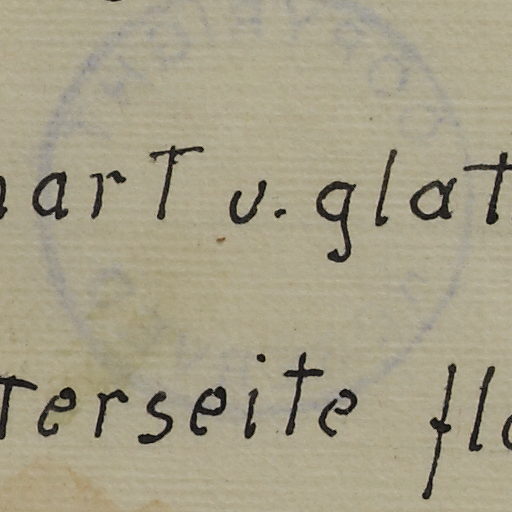 hart u. glat
terseite fl